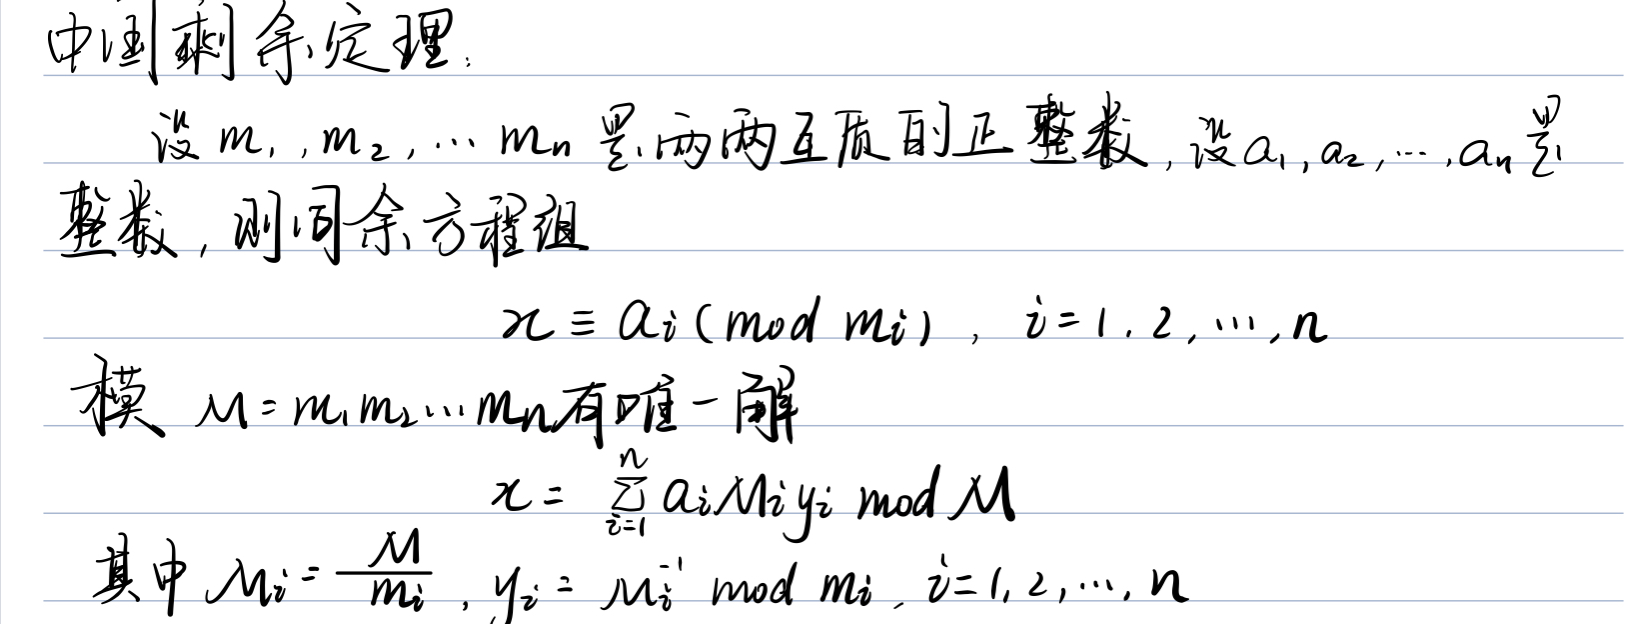 中国剩余定理:
设 m₁, m₂, … mₙ 是两两互质的正整数, 设 a₁, a₂, …, aₙ 是
整数, 则同余方程组
x ≡ aᵢ (mod mᵢ), i = 1, 2, …, n
模 M = m₁m₂…mₙ 有唯一解
x = ∑ᵢ₌₁ⁿ aᵢMᵢyᵢ mod M
其中 Mᵢ = M/mᵢ, yᵢ = Mᵢ⁻¹ mod mᵢ, i = 1, 2, …, n